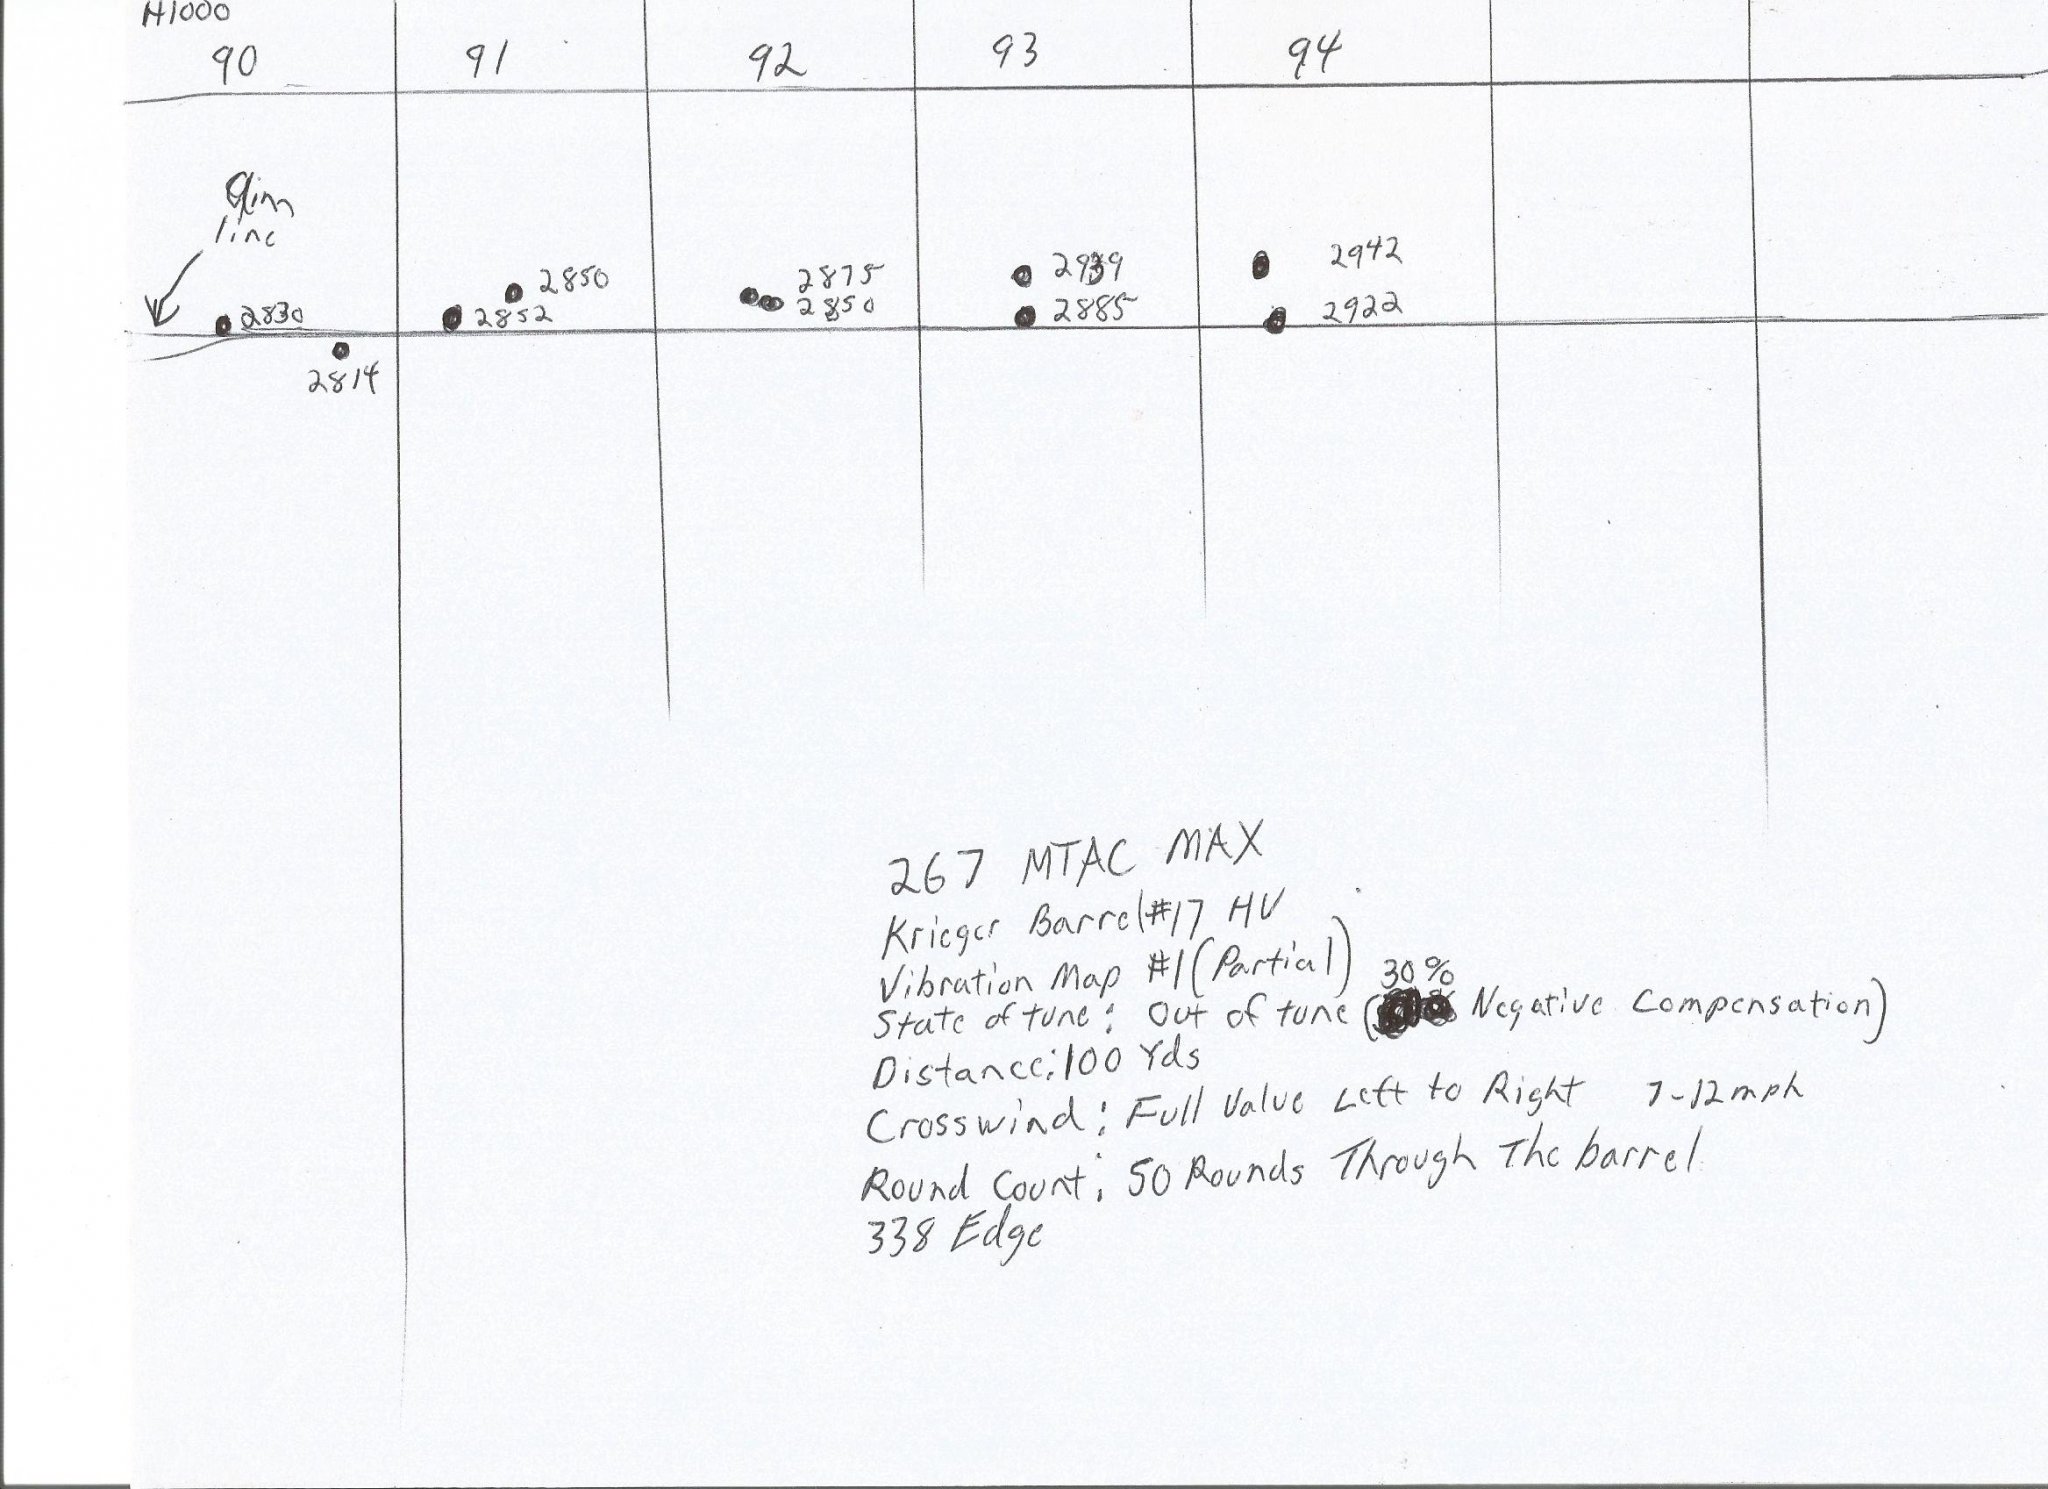 H1000
90 91 92 93 94
Aim
line
2830
2814
2850
2852
2875
2850
2939
2885
2942
2922
267 MTAC MAX
Krieger Barrel #17 HV
Vibration Map #1 (Partial)
30%
State of tune: Out of tune ( Negative Compensation)
Distance: 100 Yds
Crosswind: Full Value Left to Right 7-12mph
Round Count: 50 Rounds Through The barrel
338 Edge